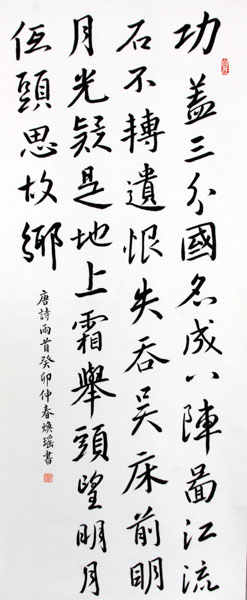 功盖三分國名成八陣啚江流
石不轉遺恨失吞吴床前明
月光疑是地上霜舉頭望明月
低頭思故鄉
唐詩兩首癸卯仲春煥瑶書